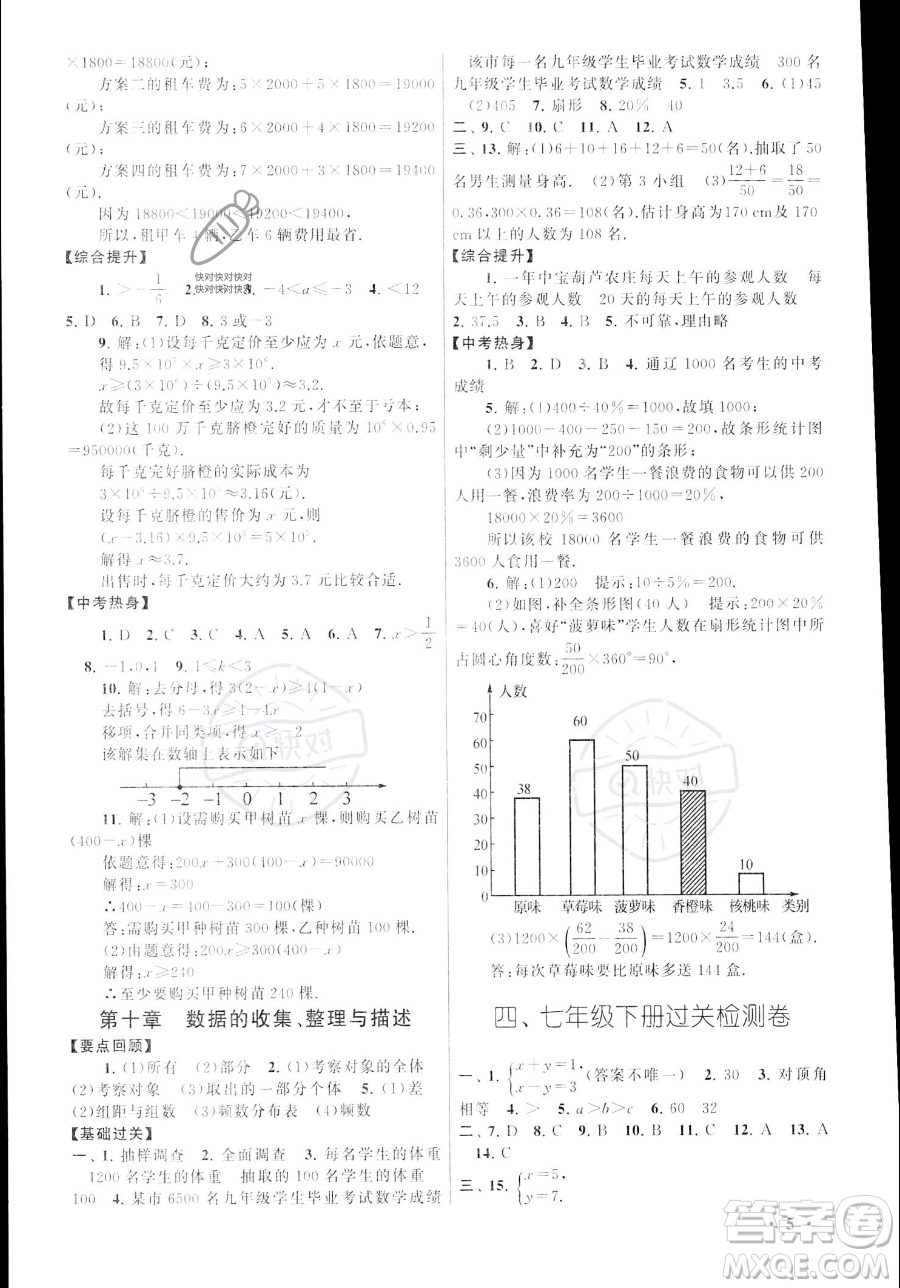 ×1800=18800(元);
方案二的租车费为:5×2000+5×1800=19000
(元);
方案三的租车费为:6×2000+4×1800=19200
(元);
方案四的租车费为:7×2000+3×1800=19400
(元).
因为 18800<19000<19200<19400.
所以,租甲车 4 辆,乙车 6 辆费用最省.
【综合提升】
1. >-1/6 2. 3. -4<a≤-3 4. <12
快对快对快对
快对快对快对
5. D 6. B 7. D 8. 3 或-3
9. 解:(1)设每千克定价至少应为 x 元,依题意,
得 9.5×10⁵x≥3×10⁶
x≥(3×10⁶)÷(9.5×10⁵)≈3.2.
故每千克定价至少应为 3.2 元,才不至于亏本;
(2)这 100 万千克脐橙完好的质量为 10⁶×0.95
=950000(千克).
每千克完好脐橙的实际成本为
3×10⁶÷9.5×10⁵≈3.16(元).
设每千克脐橙的售价为 x 元,则
(x-3.16)×9.5×10⁵=5×10⁵
解得 x≈3.7.
出售时,每千克定价大约为 3.7 元比较合适.
【中考热身】
1. D 2. C 3. C 4. A 5. A 6. A 7. x>1/2
8. -1,0,1 9. 1<k<3
10. 解:去分母,得 3(2-x)≥4(1-x)
去括号,得 6-3x≥4-4x
移项,合并同类项,得 x≥-2
该解集在数轴上表示如下
-3 -2 -1 0 1 2 3
11. 解:(1)设需购买甲树苗 x 棵,则购买乙树苗
(400-x)棵
依题意得:200x+300(400-x)=90000
解得:x=300
∴400-x=400-300=100
答:需购买甲种树苗 300 棵,乙种树苗 100 棵.
解得:x≥240
∴至少应购买甲种树苗 240 棵.
第十章 数据的收集、整理与描述
【要点回顾】
1. (1)所有 (2)部分 2. (1)考察对象的全体
(2)考察对象 (3)取出的一部分个体 5. (1)差
(2)组距与组数 (3)频数分布表 (4)频数
【基础过关】
一、1. 抽样调查 2. 全面调查 3. 每名学生的体重
1200 名学生的体重 抽取的 100 名学生的体重
100 4. 某市 6500 名九年级学生毕业考试数学成绩
该市每一名九年级学生毕业考试数学成绩 300 名
九年级学生毕业考试数学成绩 5. 1 3.5 6. (1)45
(2)405 7. 扇形 8. 20% 40
二、9. C 10. C 11. A 12. A
三、13. 解:(1)6+10+16+12+6=50(名).抽取了 50
名男生测量身高. (2)第 3 小组 (3)(12+6)/50=18/50=
0.36,300×0.36=108(名).估计身高为 170 cm及170
cm 以上的人数为 108 名.
【综合提升】
1. 一年中宝葫芦农庄每天上午的参观人数 每天
每天上午的参观人数 20 天的每天上午的参观人数
2. 37.5 3. B 4. B 5. 不可靠,理由略
【中考热身】
1. B 2. D 3. B 4. 通辽 1000 名考生的中考
成绩
5. 解:(1)400÷40%=1000. 故填 1000;
(2)1000-400-250-150=200, 故条形统计图
中“剩少量”中补充为“200”的条形;
(3)因为 1000 名学生一餐浪费的食物可以供 200
人用一餐,浪费率为 200÷1000=20%,
18000×20%=3600
所以该校 18000 名学生一餐浪费的食物可供
3600 人食用一餐.
6. 解:(1)200 提示:10÷5%=200.
(2)如图,补全条形图(40 人) 提示:200×20%
=40(人),喜好“菠萝味”学生人数在扇形统计图中所
占圆心角度数:50/200×360°=90°.
人数
70
60
50
40
30
20
10
0
38 60 50 40 10
原味 草莓味 菠萝味 香橙味 核桃味 类别
(3)1200×(62/200-38/200)=1200×24/200=144(盒).
答:每次草莓味要比原味多送 144 盒.
四、七年级下册过关检测卷
一、1. {x+y=1, x-y=3 (答案不唯一) 2. 30 3. 对顶角
相等 4. > 5. a>b>c 6. 60 32
二、7. D 8. D 9. B 10. B 11. C 12. A 13. A
14. C
三、15. {x=5, y=7.
· 5 ·
快对
快对
答案卷
MXQE.COM